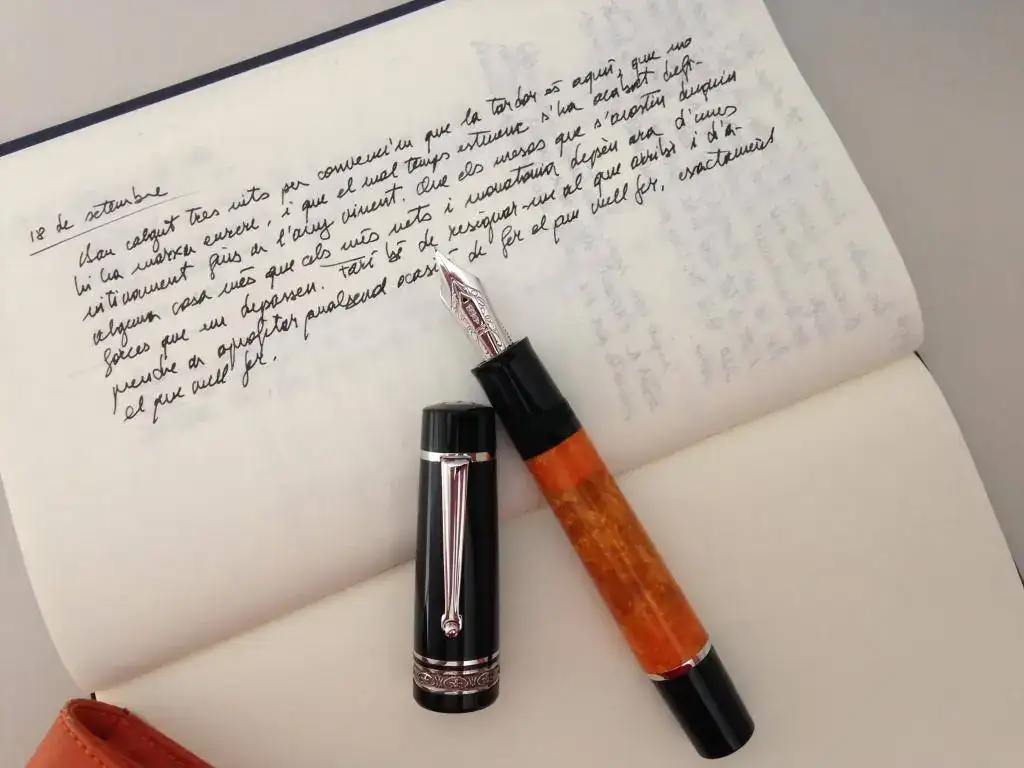 18 de setembre
Han calgut tres nits per convèncer'm que la tardor és aquí, que no
hi ha marxa enrere, i que el mal temps estiuenc s'ha acabat defi-
nitivament fins a l'any vinent. Que els mesos que s'acostin duguin
alguna cosa més que cels més nets i monotonia depèn ara d'unes
forces que em depassen. Faré bé de resignar-me al que arribi i d'a-
prendre a aprofitar qualsevol ocasió de fer el que vull fer, exactament
el que vull fer.